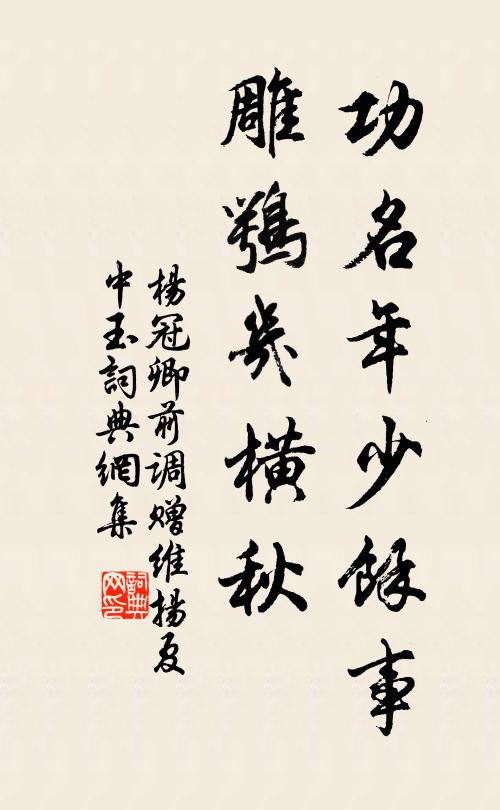 功名年少餘事
雕鶚幾橫秋
楊冠卿前調贈維揚夏
中玉詞典網集
詞典网印